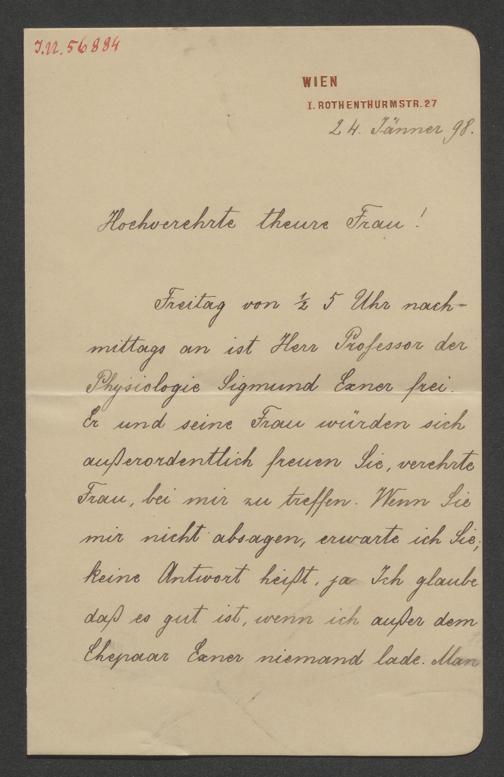 J.N. 56884
WIEN
I. ROTHENTHURMSTR. 27
24. Jänner 98.
Hochverehrte theure Frau!
Freitag von ½ 5 Uhr nach-
mittags an ist Herr Professor der
Physiologie Sigmund Exner frei.
Er und seine Frau würden sich
außerordentlich freuen Sie, verehrte
Frau, bei mir zu treffen. Wenn Sie
mir nicht absagen, erwarte ich Sie;
keine Antwort heißt, ja Ich glaube
daß es gut ist, wenn ich außer dem
Ehepaar Exner niemand lade. Man